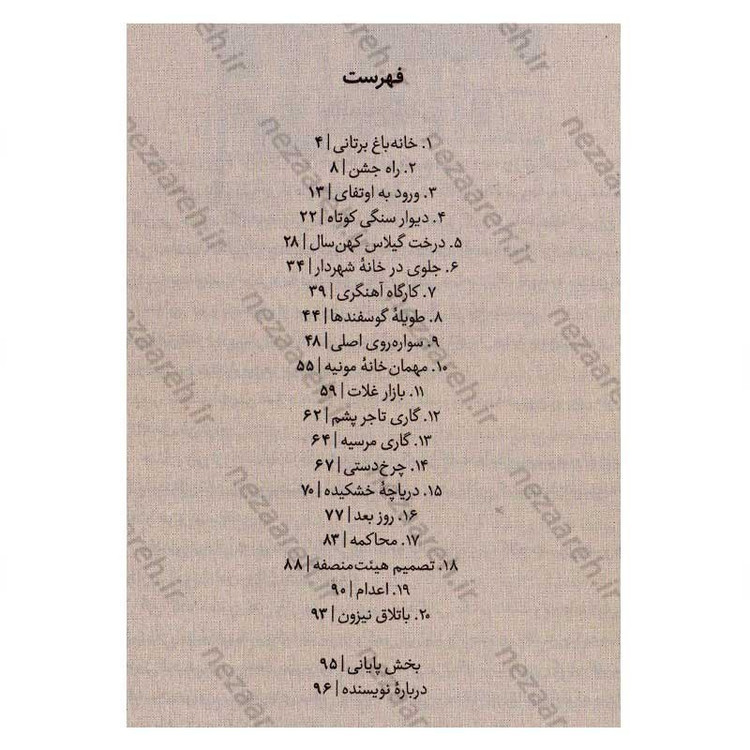 فهرست
۱. خانه‌باغ برتانی | ۴
۲. راه جشن | ۸
۳. ورود به اوتفای | ۱۳
۴. دیوار سنگی کوتاه | ۲۲
۵. درخت گیلاس کهن‌سال | ۲۸
۶. جلوی در خانهٔ شهردار | ۳۴
۷. کارگاه آهنگری | ۳۹
۸. طویلهٔ گوسفندها | ۴۴
۹. سواره‌روی اصلی | ۴۸
۱۰. مهمان‌خانهٔ مونیه | ۵۵
۱۱. بازار غلات | ۵۹
۱۲. گاری تاجر پشم | ۶۲
۱۳. گاری مرسیه | ۶۴
۱۴. چرخ‌دستی | ۶۷
۱۵. دریاچهٔ خشکیده | ۷۰
۱۶. روز بعد | ۷۷
۱۷. محاکمه | ۸۳
۱۸. تصمیم هیئت‌منصفه | ۸۸
۱۹. اعدام | ۹۰
۲۰. باتلاق نیزون | ۹۳
بخش پایانی | ۹۵
دربارهٔ نویسنده | ۹۶
nezaareh.ir